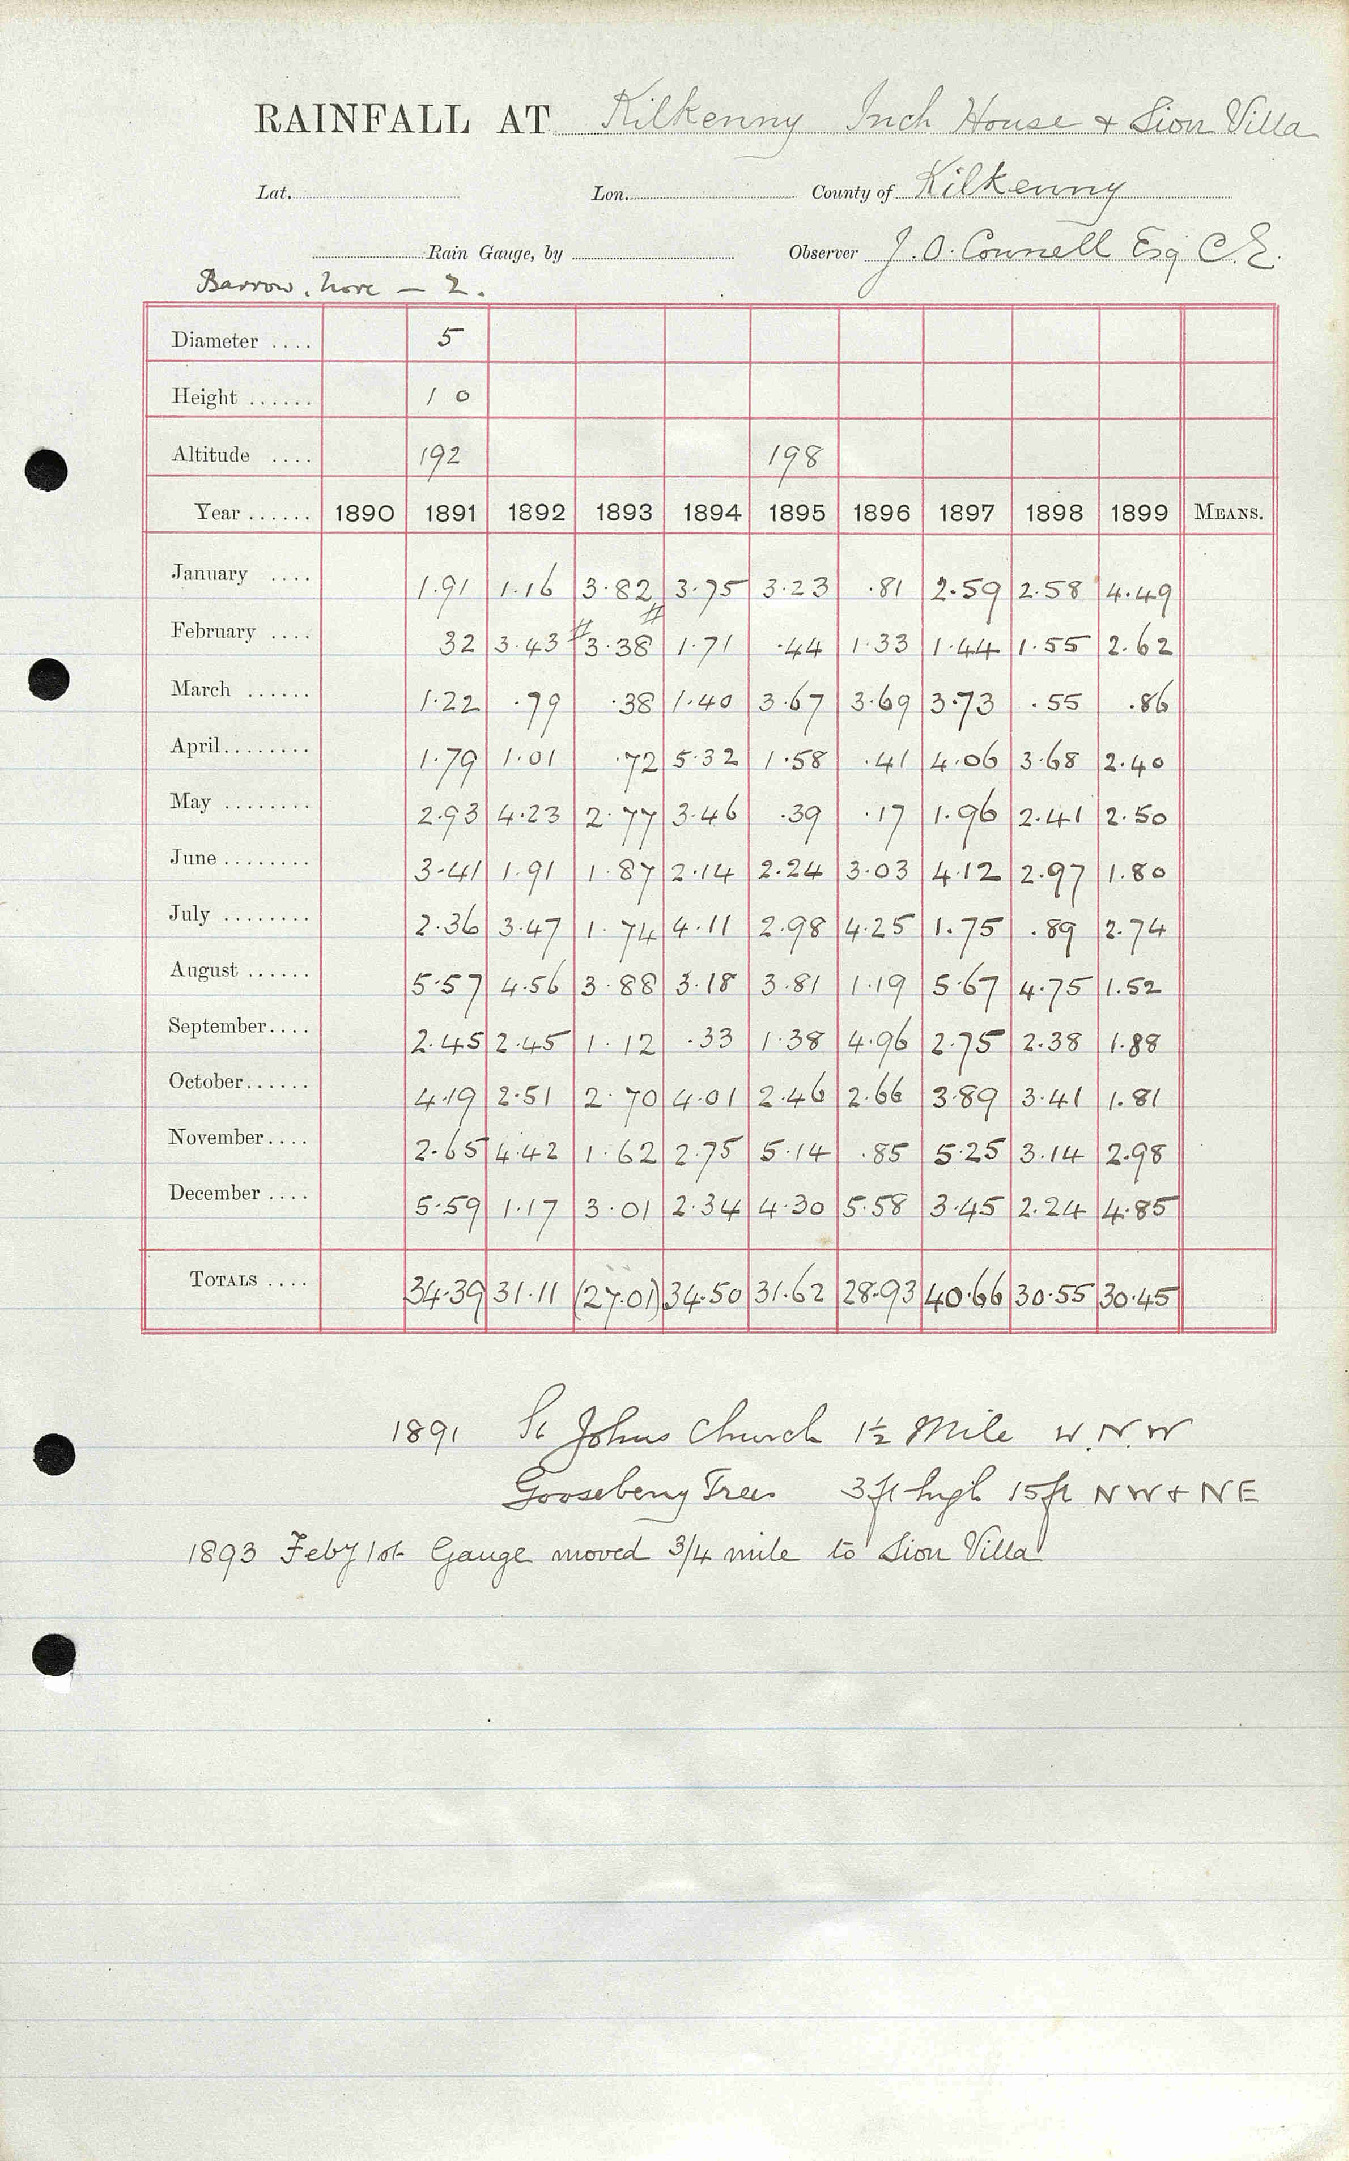 RAINFALL AT Kilkenny Inch House & Sion Villa
Lat. Lon. County of Kilkenny
Rain Gauge, by Observer J. O. Connell Esq C.E.
Barrow. Nore — 2.
Diameter .... 5
Height ...... 1 0
Altitude .... 192 198
Year ...... 1890 1891 1892 1893 1894 1895 1896 1897 1898 1899 MEANS.
January .... 1.91 1.16 3.82 3.75 3.23 .81 2.59 2.58 4.49
February .... 32 3.43 #3.38# 1.71 .44 1.33 1.44 1.55 2.62
March ...... 1.22 .79 .38 1.40 3.67 3.69 3.73 .55 .86
April........ 1.79 1.01 .72 5.32 1.58 .41 4.06 3.68 2.40
May ........ 2.93 4.23 2.77 3.46 .39 .17 1.96 2.41 2.50
June ........ 3.41 1.91 1.87 2.14 2.24 3.03 4.12 2.97 1.80
July ........ 2.36 3.47 1.74 4.11 2.98 4.25 1.75 .89 2.74
August ...... 5.57 4.56 3.88 3.18 3.81 1.19 5.67 4.75 1.52
September.... 2.45 2.45 1.12 .33 1.38 4.96 2.75 2.38 1.88
October...... 4.19 2.51 2.70 4.01 2.46 2.66 3.89 3.41 1.81
November.... 2.65 4.42 1.62 2.75 5.14 .85 5.25 3.14 2.98
December .... 5.59 1.17 3.01 2.34 4.30 5.58 3.45 2.24 4.85
TOTALS .... 34.39 31.11 (27.01) 34.50 31.62 28.93 40.66 30.55 30.45
1891 St Johns Church 1½ Mile W.N.W
Gooseberry Trees 3 ft high 15 ft NW & NE
1893 Feby 1st Gauge moved 3/4 mile to Sion Villa